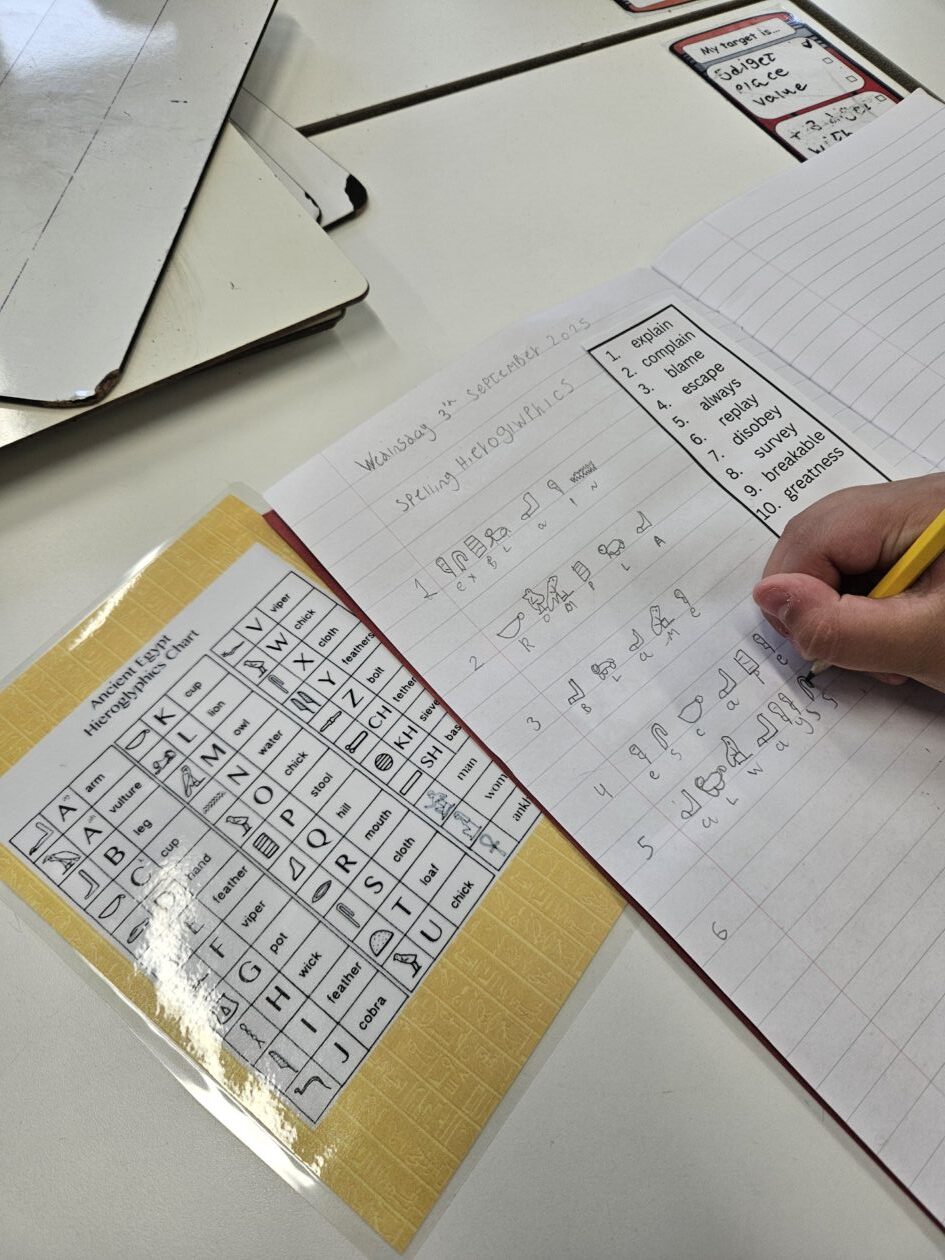 My target is...
5 diget
Place
value
+ 3-diget
with
1. explain
2. complain
3. blame
4. escape
5. always
6. replay
7. disobey
8. survey
9. breakable
10. greatness
Wedinsday 3th SePTEMBER 2025
SPelling HieroglwPhics
1 e x B L a I N
2 R O M P L A
3 B L a M e
4 e S C a P e
5 a L W a y S
6
Ancient Egypt
Hieroglyphics Chart
A arm
A vulture
B leg
C cup
D hand
E feather
F viper
G pot
H wick
I feather
J cobra
K cup
L lion
M owl
N water
O chick
P stool
Q hill
R mouth
S cloth
T loaf
U chick
V viper
W chick
X cloth
Y feathers
Z bolt
CH tether
KH sieve
SH bas
man
wom
ankh